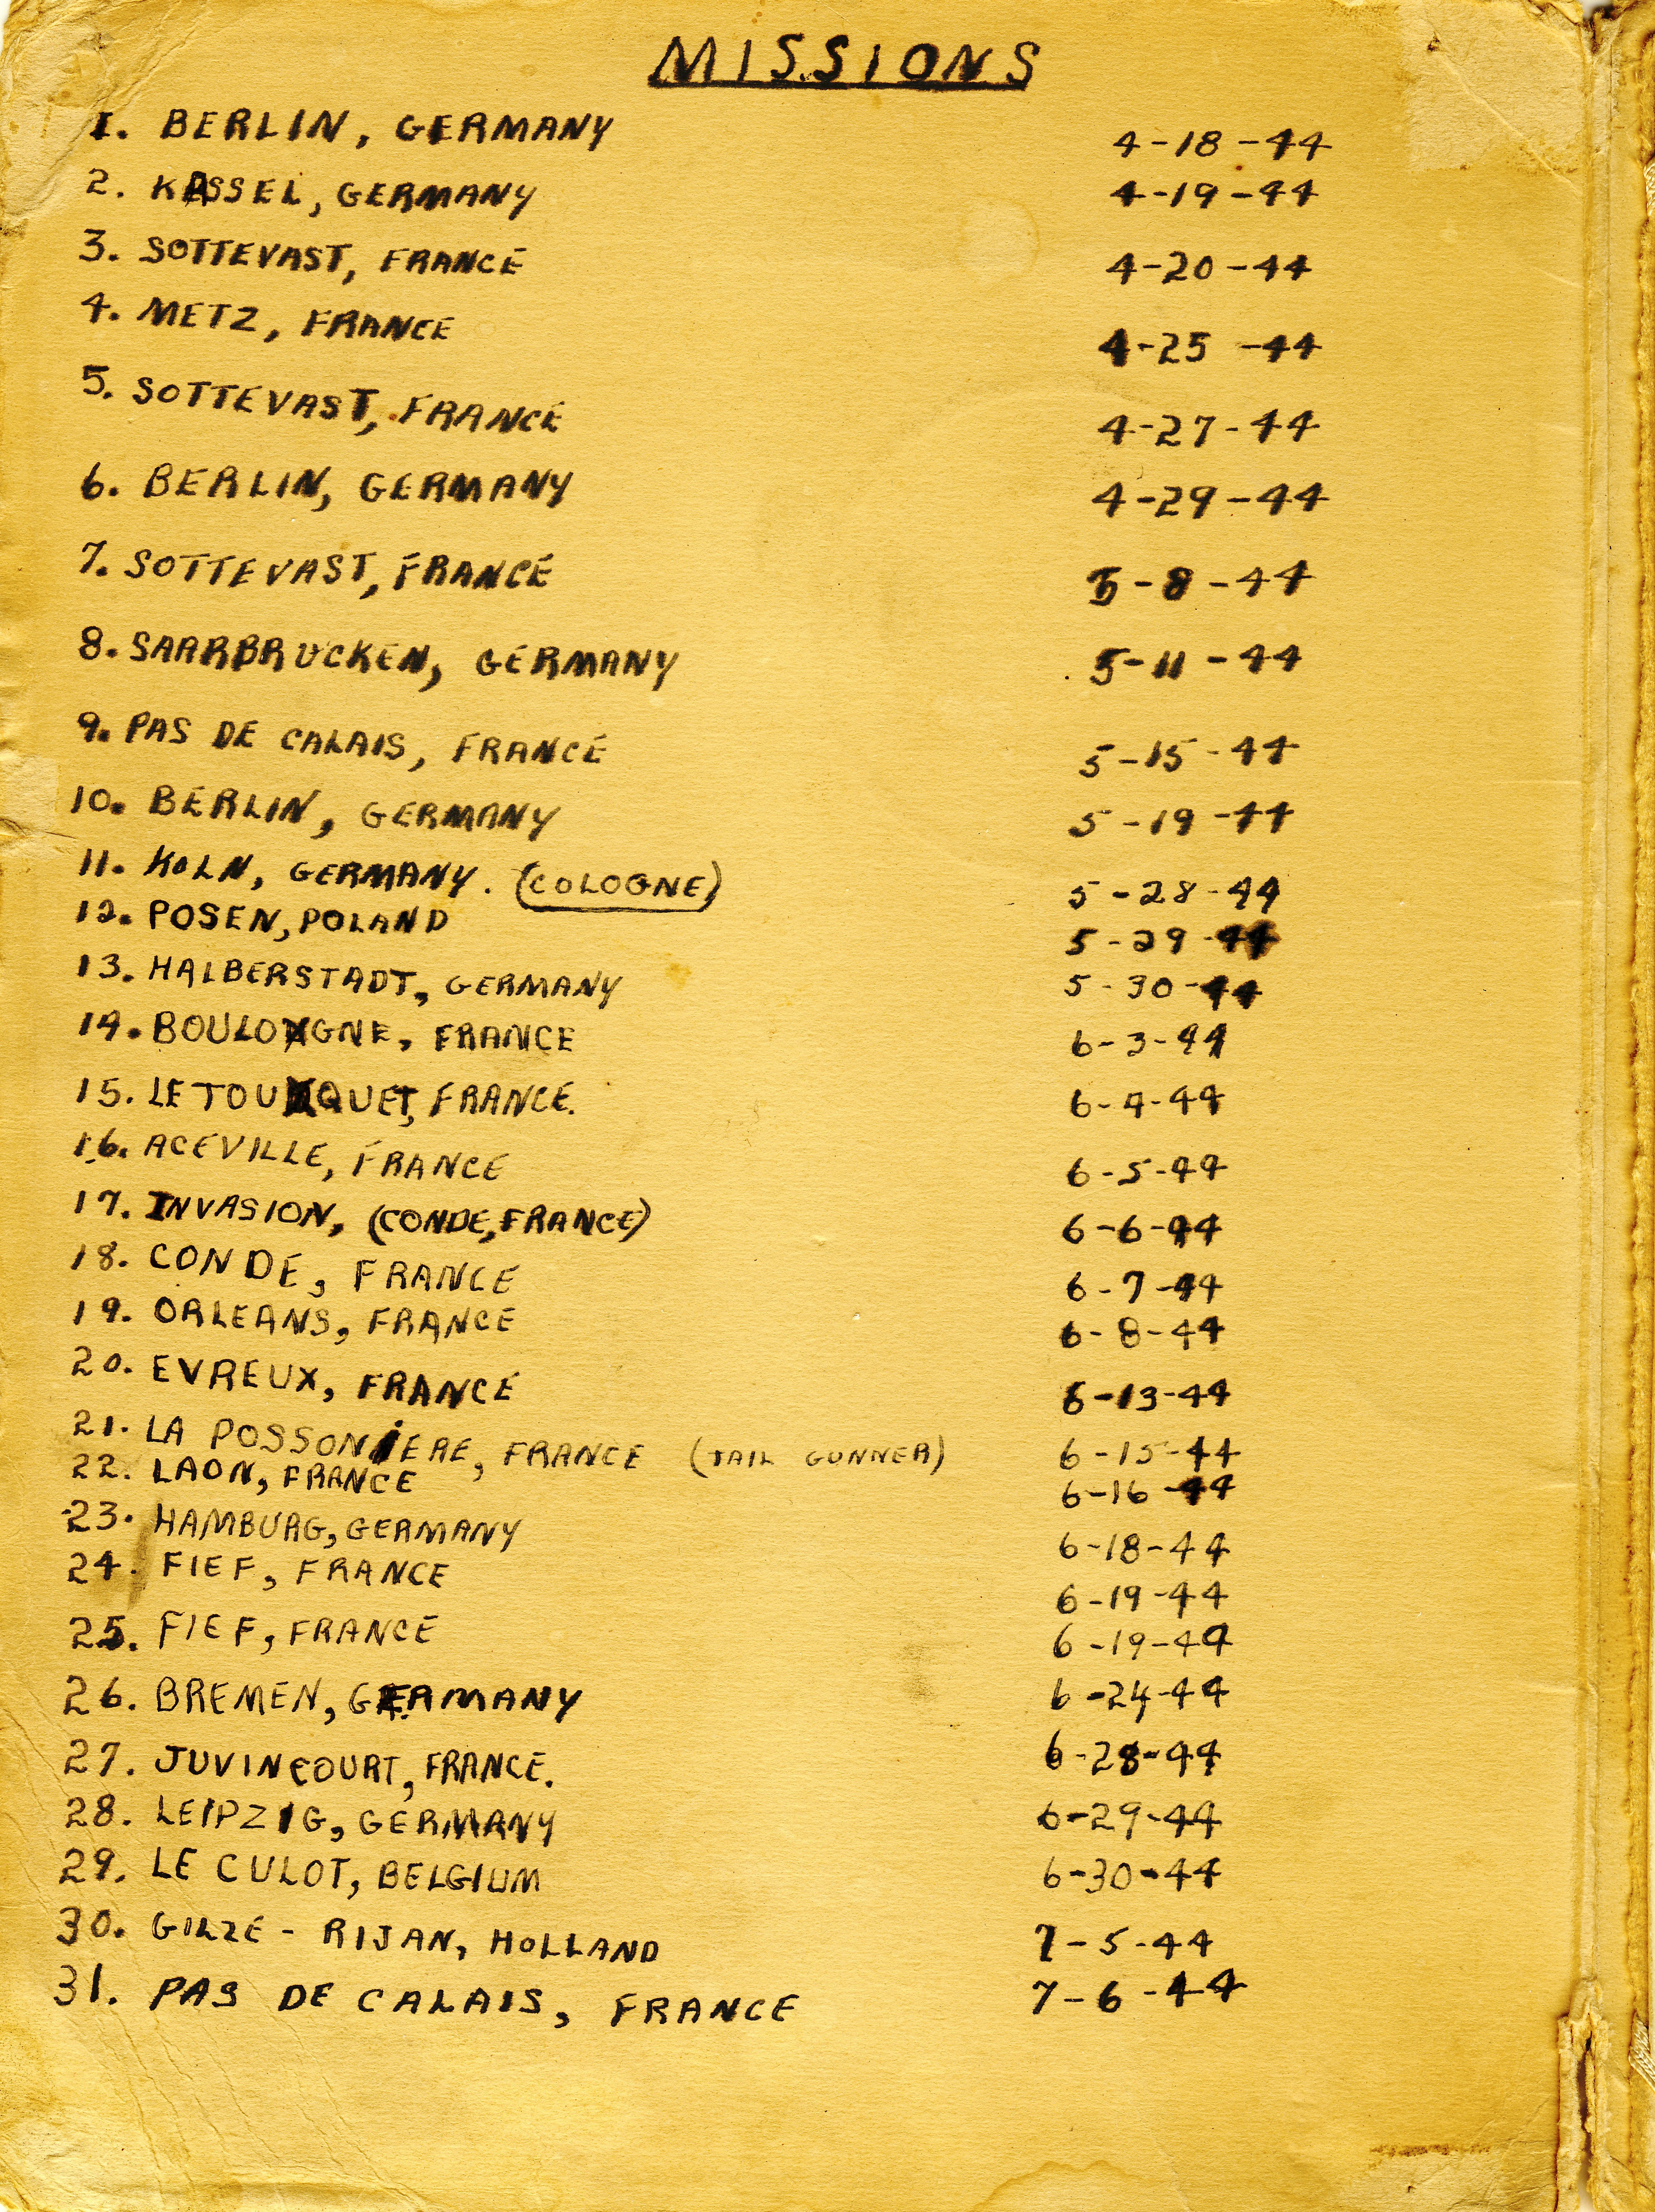 MISSIONS
1. BERLIN, GERMANY 4-18-44
2. KASSEL, GERMANY 4-19-44
3. SOTTEVAST, FRANCE 4-20-44
4. METZ, FRANCE 4-25-44
5. SOTTEVAST, FRANCE 4-27-44
6. BERLIN, GERMANY 4-29-44
7. SOTTEVAST, FRANCE 5-8-44
8. SAARBRUCKEN, GERMANY 5-11-44
9. PAS DE CALAIS, FRANCE 5-15-44
10. BERLIN, GERMANY 5-19-44
11. KOLN, GERMANY. (COLOGNE) 5-28-44
12. POSEN, POLAND 5-29-44
13. HALBERSTADT, GERMANY 5-30-44
14. BOULOGNE, FRANCE 6-3-44
15. LE TOUQUET, FRANCE. 6-4-44
16. ACEVILLE, FRANCE 6-5-44
17. INVASION, (CONDE, FRANCE) 6-6-44
18. CONDE, FRANCE 6-7-44
19. ORLEANS, FRANCE 6-8-44
20. EVREUX, FRANCE 6-13-44
21. LA POSSONIERE, FRANCE (TAIL GUNNER) 6-15-44
22. LAON, FRANCE 6-16-44
23. HAMBURG, GERMANY 6-18-44
24. FIEF, FRANCE 6-19-44
25. FIEF, FRANCE 6-19-44
26. BREMEN, GERMANY 6-24-44
27. JUVINCOURT, FRANCE. 6-28-44
28. LEIPZIG, GERMANY 6-29-44
29. LE CULOT, BELGIUM 6-30-44
30. GILZE - RIJAN, HOLLAND 7-5-44
31. PAS DE CALAIS, FRANCE 7-6-44